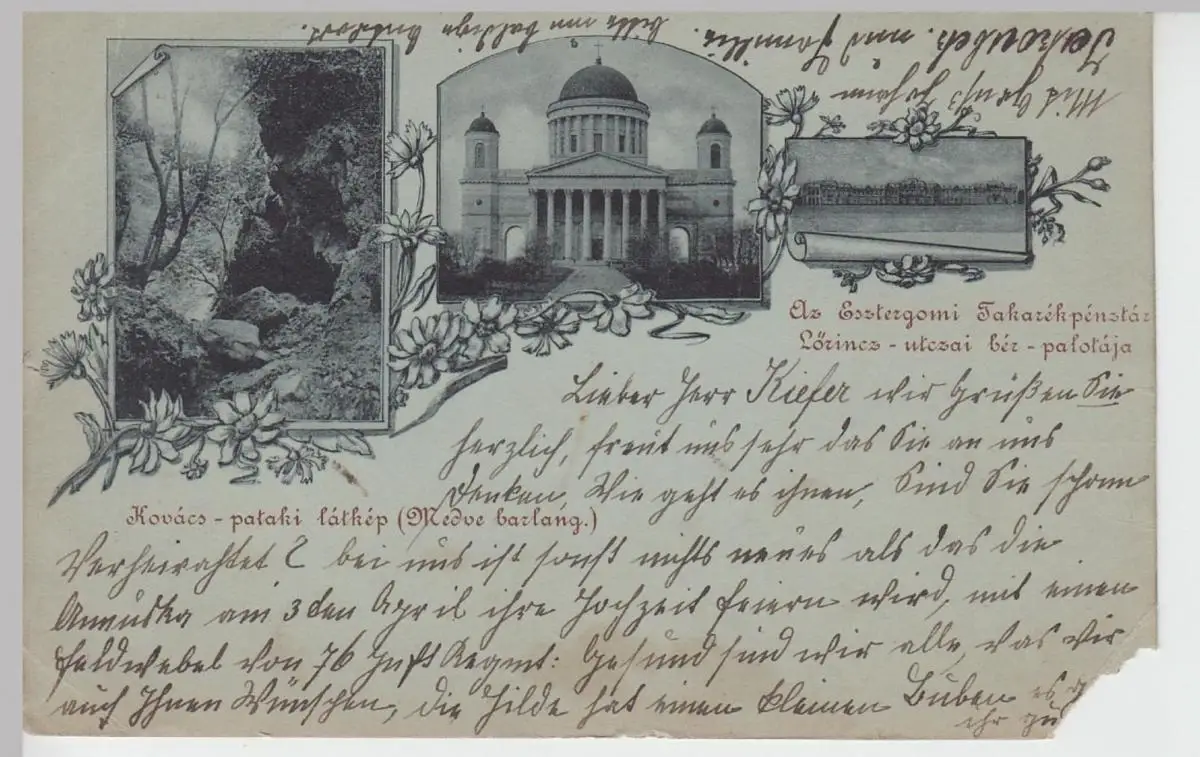 Az Esztergomi Takarékpénztár
Lőrincz - utczai bér - palotája
Kovács - pataki látkép (Medve barlang.)
Lieber Herr Kiefer wir Grüßen Sie
herzlich, freut uns sehr das Sie an uns
denken, Wie geht es ihnen, Sind Sie schonn
Verheirahtet? bei uns ist sonst nichts neues als das die
Annuska am 3 den April ihre Hochzeit feiern wird, mit einen
Feldwebel von 76 Inft Regmt: Gesund sind wir alle, was wir
auch Ihnen Wünschen, die Hilde hat einen kleinen Buben es
ihr gu
Mit Gruß Johann
und Familie.
bitte um baldige Antwort.